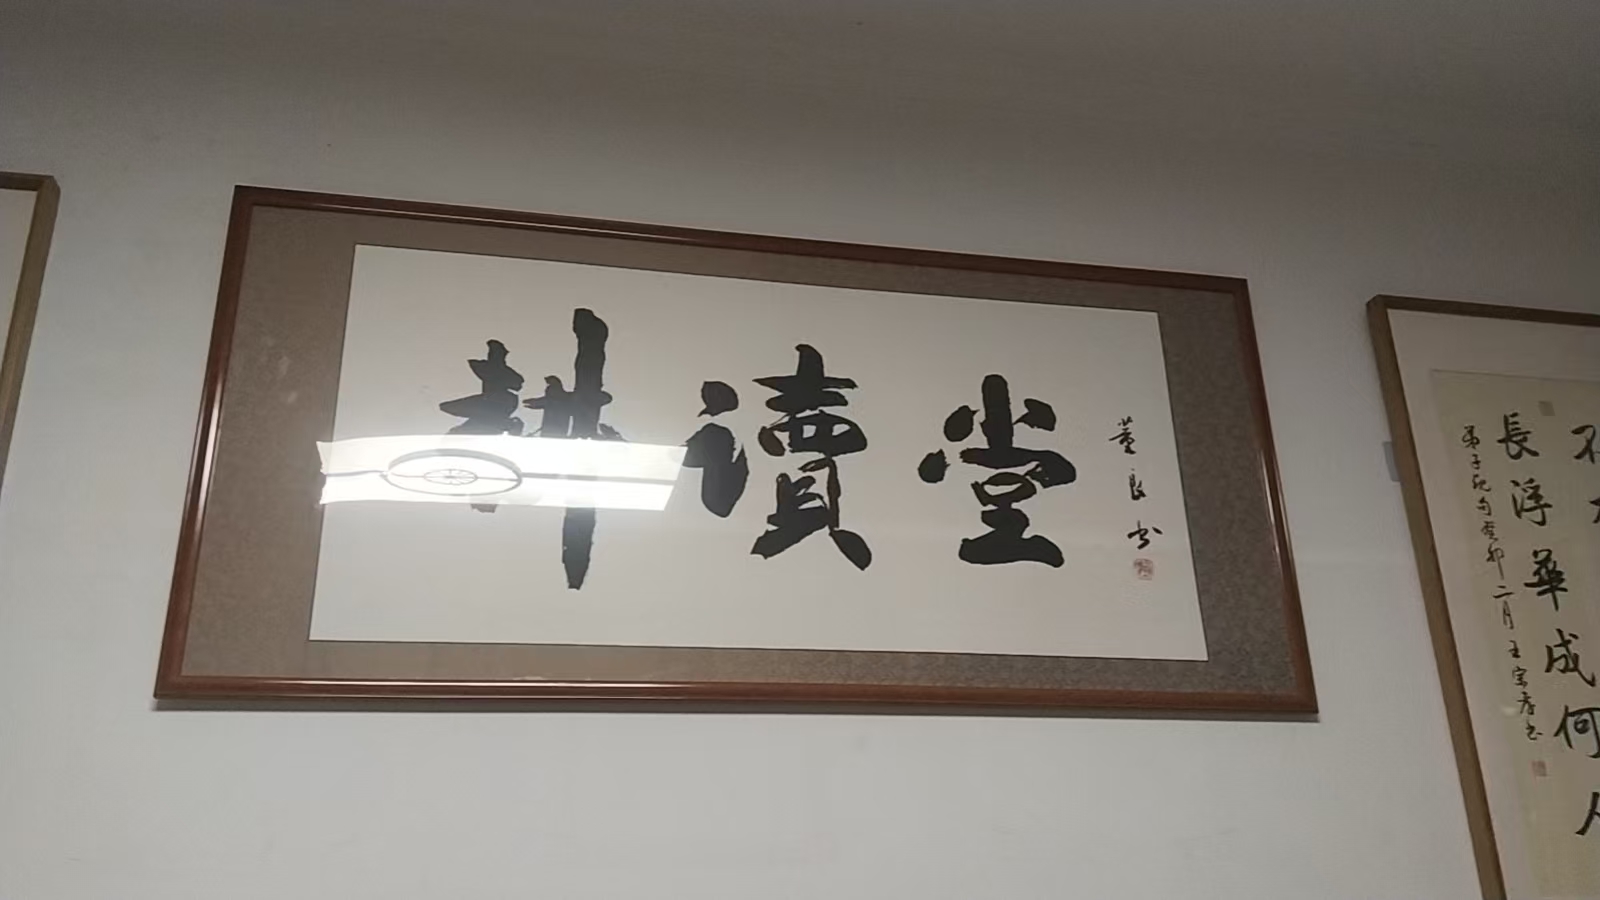 耕讀堂
董良书
不力
長浮華成何人
弟子規句癸卯二月王宗孝书